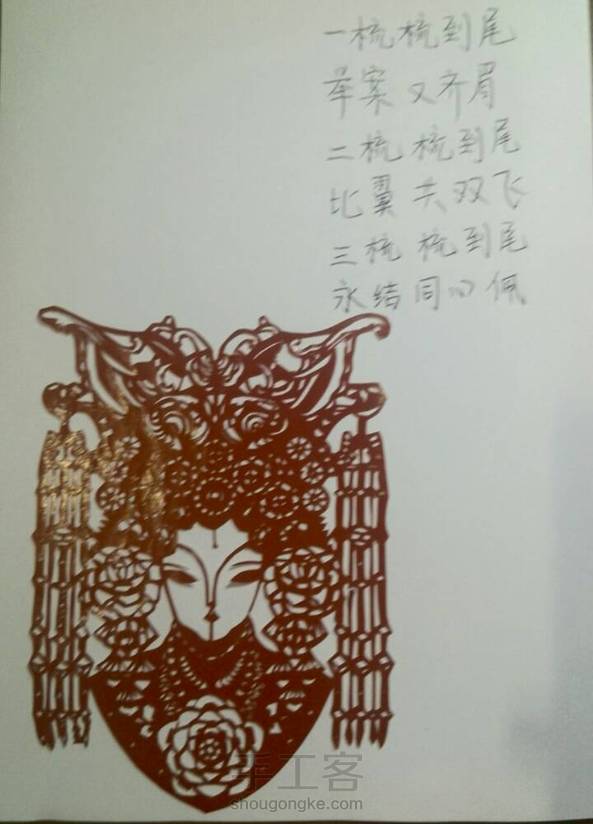 一梳梳到尾
举案又齐眉
二梳梳到尾
比翼共双飞
三梳梳到尾
永结同心佩
手工客
shougongke.com